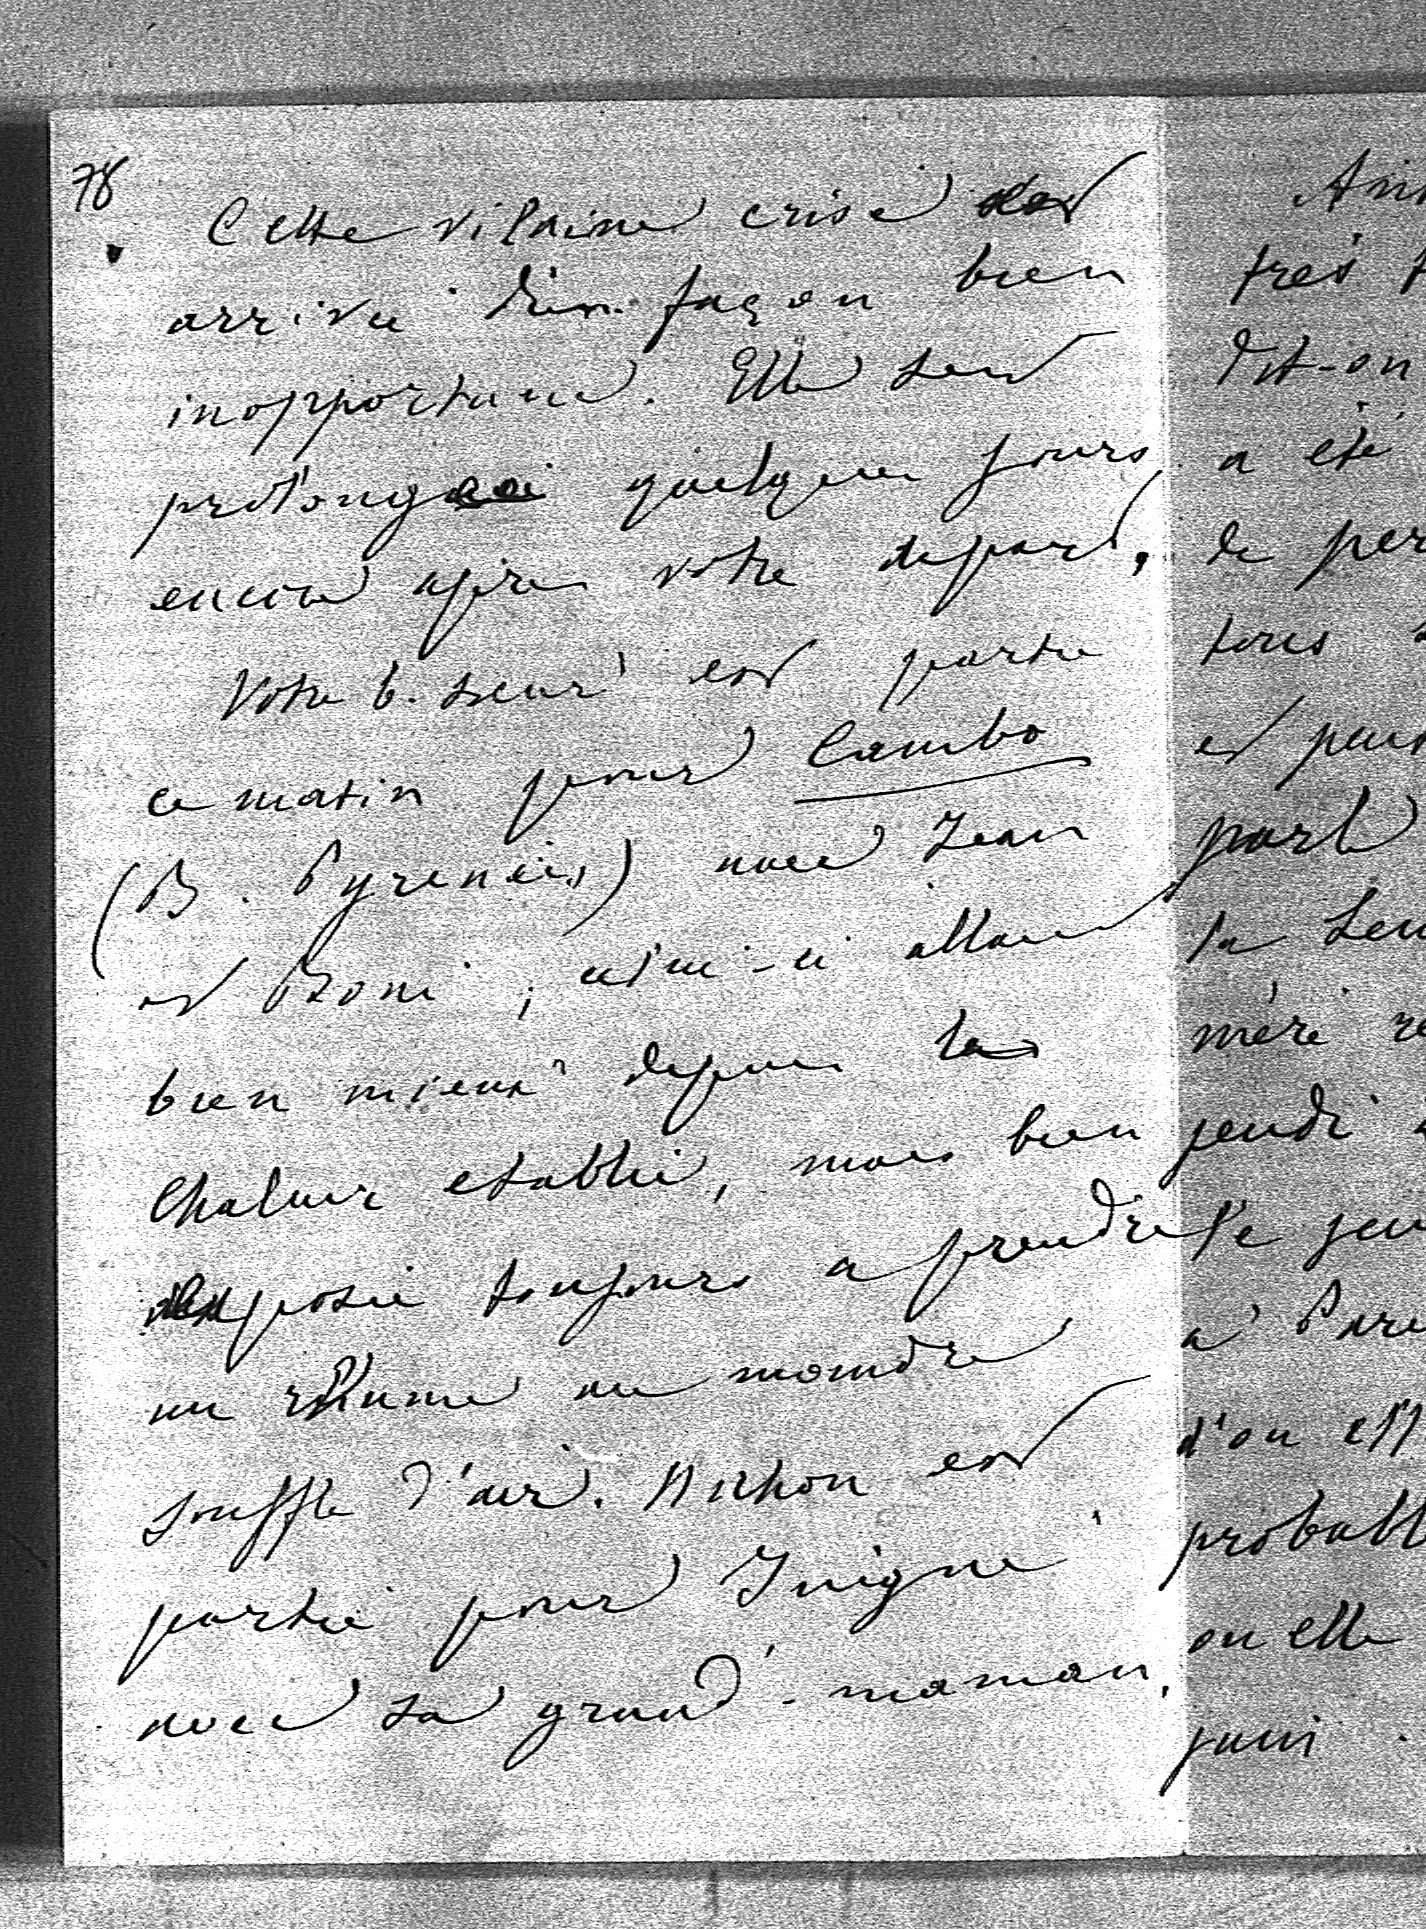 78
Cette vilaine crise est
arrivée d'une façon bien
inopportune. Elle s'est
prolongée quelques jours
encore après votre départ.
Votre b. sœur est partie
ce matin pour Cambo
(B. Pyrénées) avec Jean
et Boni, celui-ci allant
bien mieux depuis la
chaleur établie, mais bien
exposé toujours a prendre
un rhume au moindre
souffle d'air. est
partie pour Juigné
avec sa grand-maman.
très
dit-on
a été
de
tous
et
parle
sa
mère
jeudi
le
a
d'où

où elle
juin.